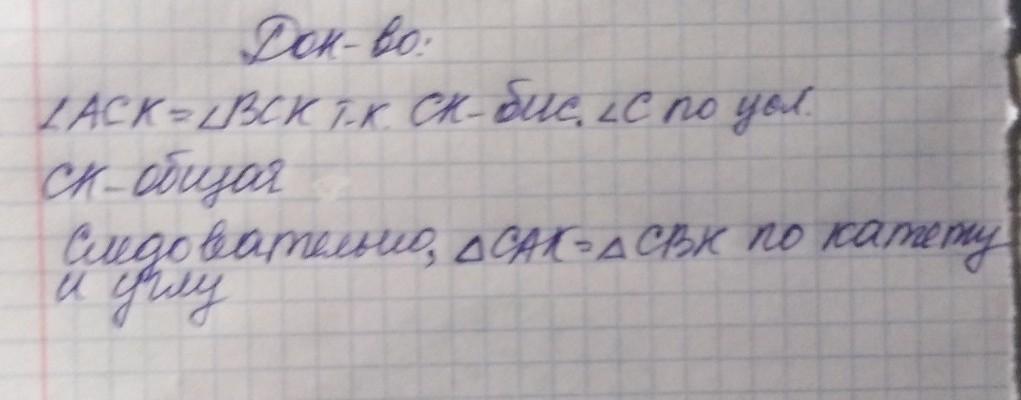 Док-во:
∠ACK=∠BCK т.к. CK-бис. ∠C по усл.
CK-общая
Следовательно, △CAK=△CBK по катету
и углу